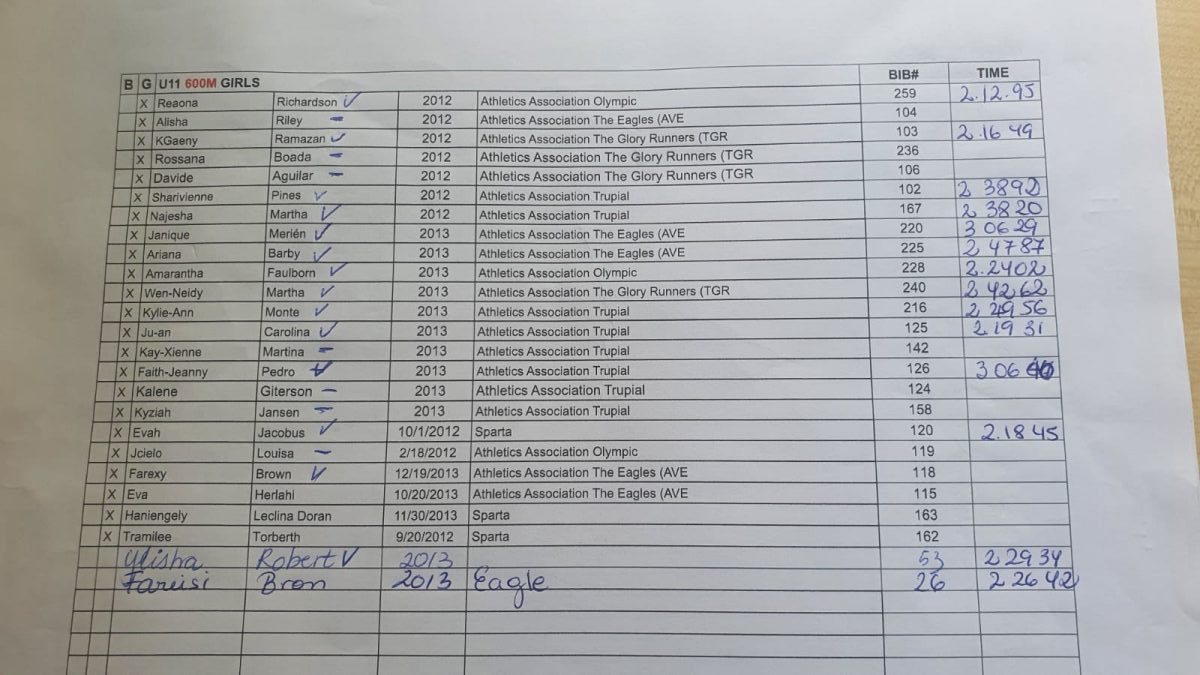 B G U11 600M GIRLS BIB# TIME
X Reaona Richardson ✓ 2012 Athletics Association Olympic 259 2.12.95
X Alisha Riley – 2012 Athletics Association The Eagles (AVE 104
X KGaeny Ramazan ✓ 2012 Athletics Association The Glory Runners (TGR 103 2.16 49
X Rossana Boada – 2012 Athletics Association The Glory Runners (TGR 236
X Davide Aguilar – 2012 Athletics Association The Glory Runners (TGR 106
X Sharivienne Pines ✓ 2012 Athletics Association Trupial 102 2 3892
X Najesha Martha ✓ 2012 Athletics Association Trupial 167 2 3820
X Janique Merién ✓ 2013 Athletics Association The Eagles (AVE 220 3 06 29
X Ariana Barby ✓ 2013 Athletics Association The Eagles (AVE 225 2 4787
X Amarantha Faulborn ✓ 2013 Athletics Association Olympic 228 2.2402
X Wen-Neidy Martha ✓ 2013 Athletics Association The Glory Runners (TGR 240 2 42 62
X Kylie-Ann Monte ✓ 2013 Athletics Association Trupial 216 2 29 56
X Ju-an Carolina ✓ 2013 Athletics Association Trupial 125 2 19 31
X Kay-Xienne Martina – 2013 Athletics Association Trupial 142
X Faith-Jeanny Pedro ✓ 2013 Athletics Association Trupial 126 3 06
X Kalene Giterson – 2013 Athletics Association Trupial 124
X Kyziah Jansen – 2013 Athletics Association Trupial 158
X Evah Jacobus ✓ 10/1/2012 Sparta 120 2.18 45
X Jcielo Louisa – 2/18/2012 Athletics Association Olympic 119
X Farexy Brown ✓ 12/19/2013 Athletics Association The Eagles (AVE 118
X Eva Herlahi 10/20/2013 Athletics Association The Eagles (AVE 115
X Haniengely Leclina Doran 11/30/2013 Sparta 163
X Tramilee Torberth 9/20/2012 Sparta 162
Robert ✓ 2013 53 2 29 34
Bron 2013 Eagle 26 2 26 42